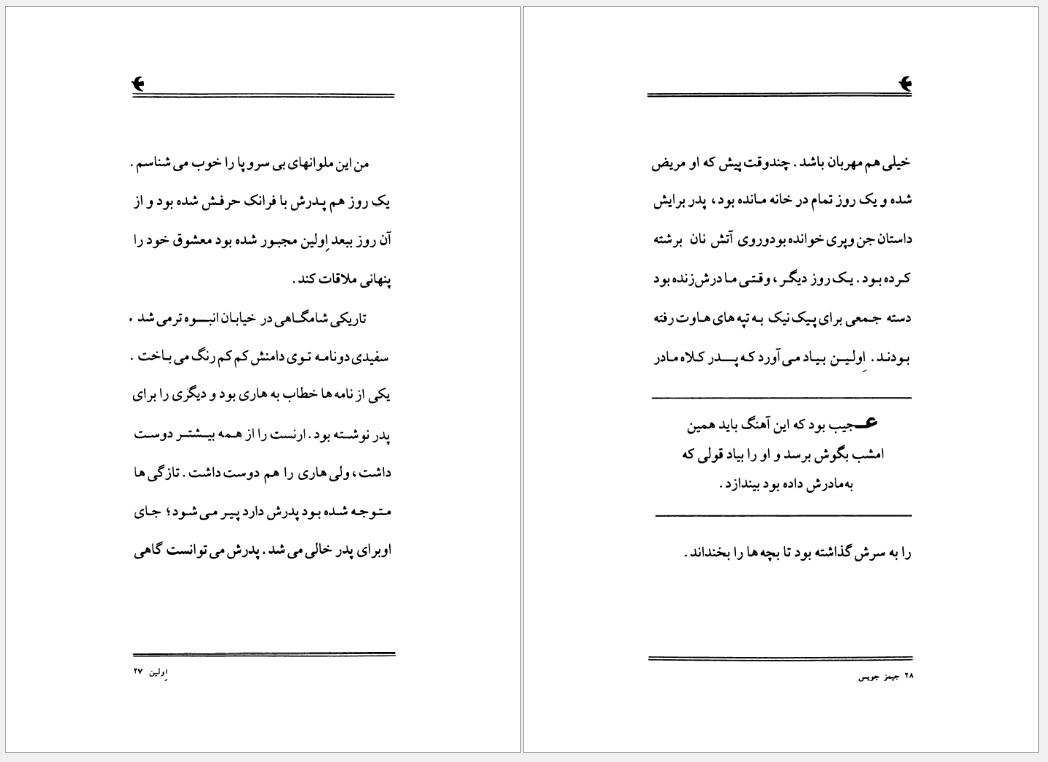 من این ملوانهای بی سروپا را خوب می شناسم .
یک روز هم پدرش با فرانک حرفش شده بود و از
آن روز ببعد اِولین مجبور شده بود معشوق خود را
پنهانی ملاقات کند .
تاریکی شامگاهی در خیابان انبوه ترمی شد .
سفیدی دونامه توی دامنش کم کم رنگ می باخت .
یکی از نامه ها خطاب به هاری بود و دیگری را برای
پدر نوشته بود . ارنست را از همه بیشتر دوست
داشت ، ولی هاری را هم دوست داشت . تازگی ها
متوجه شده بود پدرش دارد پیر می شود ؛ جای
اوبرای پدر خالی می شد . پدرش می توانست گاهی
اِولین ۲۷
خیلی هم مهربان باشد . چندوقت پیش که او مریض
شده و یک روز تمام در خانه مانده بود ، پدر برایش
داستان جن وپری خوانده بودوروی آتش نان برشته
کرده بود . یک روز دیگر ، وقتی مادرش زنده بود
دسته جمعی برای پیک نیک به تپه های هاوت رفته
بودند . اِولین بیاد می آورد که پدر کلاه مادر
عجیب بود که این آهنگ باید همین
امشب بگوش برسد و او را بیاد قولی که
به مادرش داده بود بیندازد .
را به سرش گذاشته بود تا بچه ها را بخنداند .
۲۸ جیمز جویس